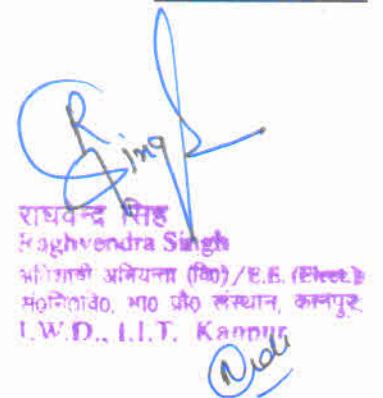 R Singh
राघवेन्द्र सिंह
Raghvendra Singh
अधिशासी अभियन्ता (वि०)/E.E. (Elect.)
सं०नि०वि०, भा० प्रौ० संस्थान, कानपुर
I.W.D., I.I.T. Kanpur